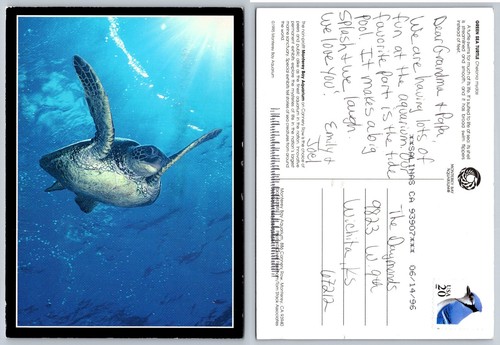 GREEN SEA TURTLE Chelonia mydas
A turtle swims for much of its life. It is suited to life at sea: its shell
is streamlined and smooth, and it has broad swim flippers
instead of feet.
Dear Grandma & Papa
We are having lots of
fun at the aquarium. Our
favorite part is the tide
pool. It makes a big
splash & we laugh.
We love you!
Emily &
Joel
MONTEREY BAY
AQUARIUM
**SALINAS CA 93907*** 06/14/96
USA
20
The Daymonds
9823 W 9th
Wichita, KS
67212
The non-profit Monterey Bay Aquarium on Cannery Row is the choice of
Monterey Bay Aquarium, 886 Cannery Row, Monterey, CA 93940
the world.
©1992 Monterey Bay Aquarium